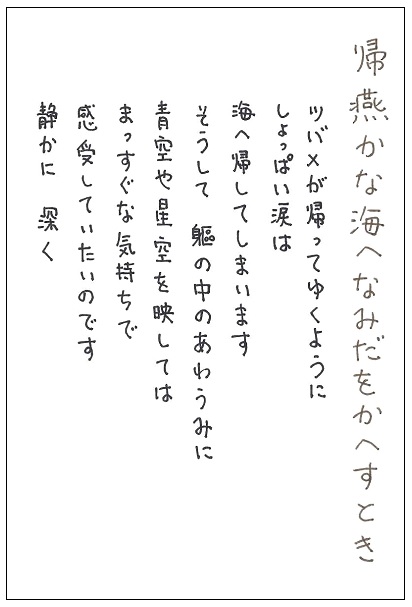 帰燕かな海へなみだをかへすとき
ツバメが帰ってゆくように
しょっぱい涙は
海へ帰してしまいます
そうして　軀の中のあわうみに
青空や星空を映しては
まっすぐな気持ちで
感受していたいのです
静かに　深く